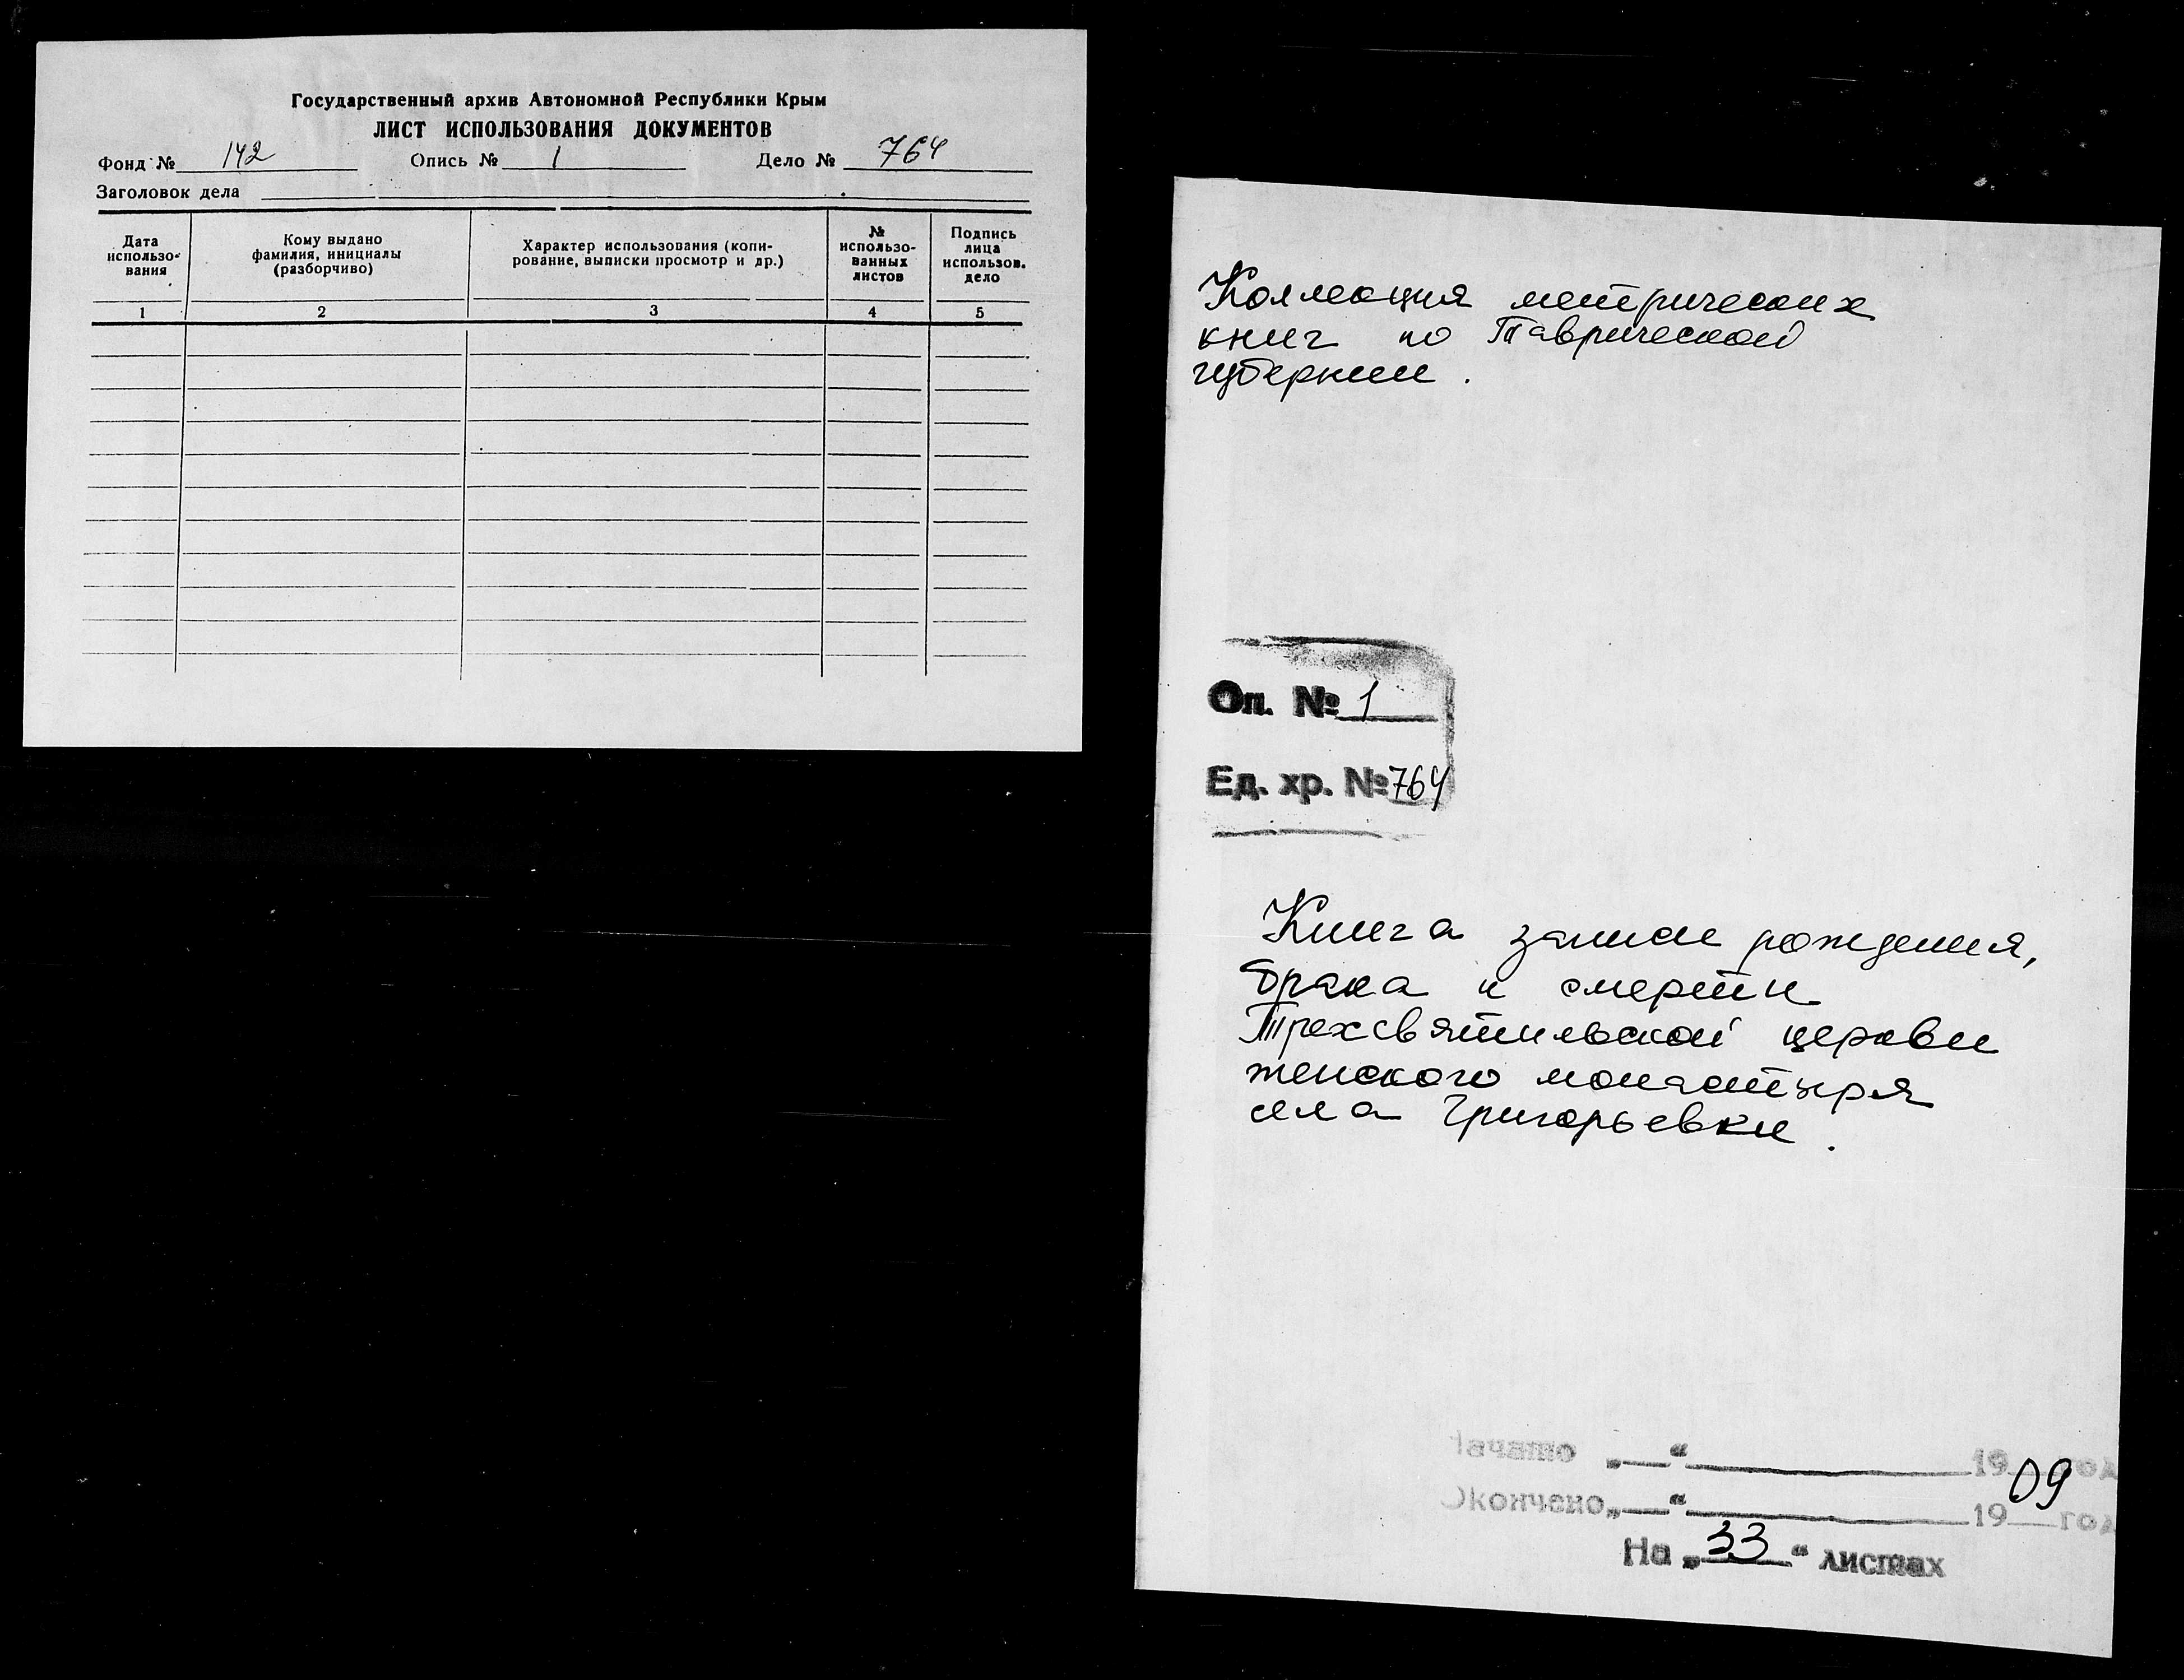 Государственный архив Автономной Республики Крым
ЛИСТ ИСПОЛЬЗОВАНИЯ ДОКУМЕНТОВ
Фонд № 142 Опись № 1 Дело № 764
Заголовок дела
Дата использо-вания
Кому выдано фамилия, инициалы (разборчиво)
Характер использования (копи-рование, выписки просмотр и др.)
№ использо-ванных листов
Подпись лица использов. дело
1 2 3 4 5
Коллекция метрических
книг по Таврической
губернии.
Оп. № 1
Ед. хр. № 764
Книга записи рождения,
брака и смерти
Трехсвятильской церкви
женского монастыря
села Григорьевки.
Начато „ “ 19 год
Окончено „ “ 1909 год
На „33“ листах